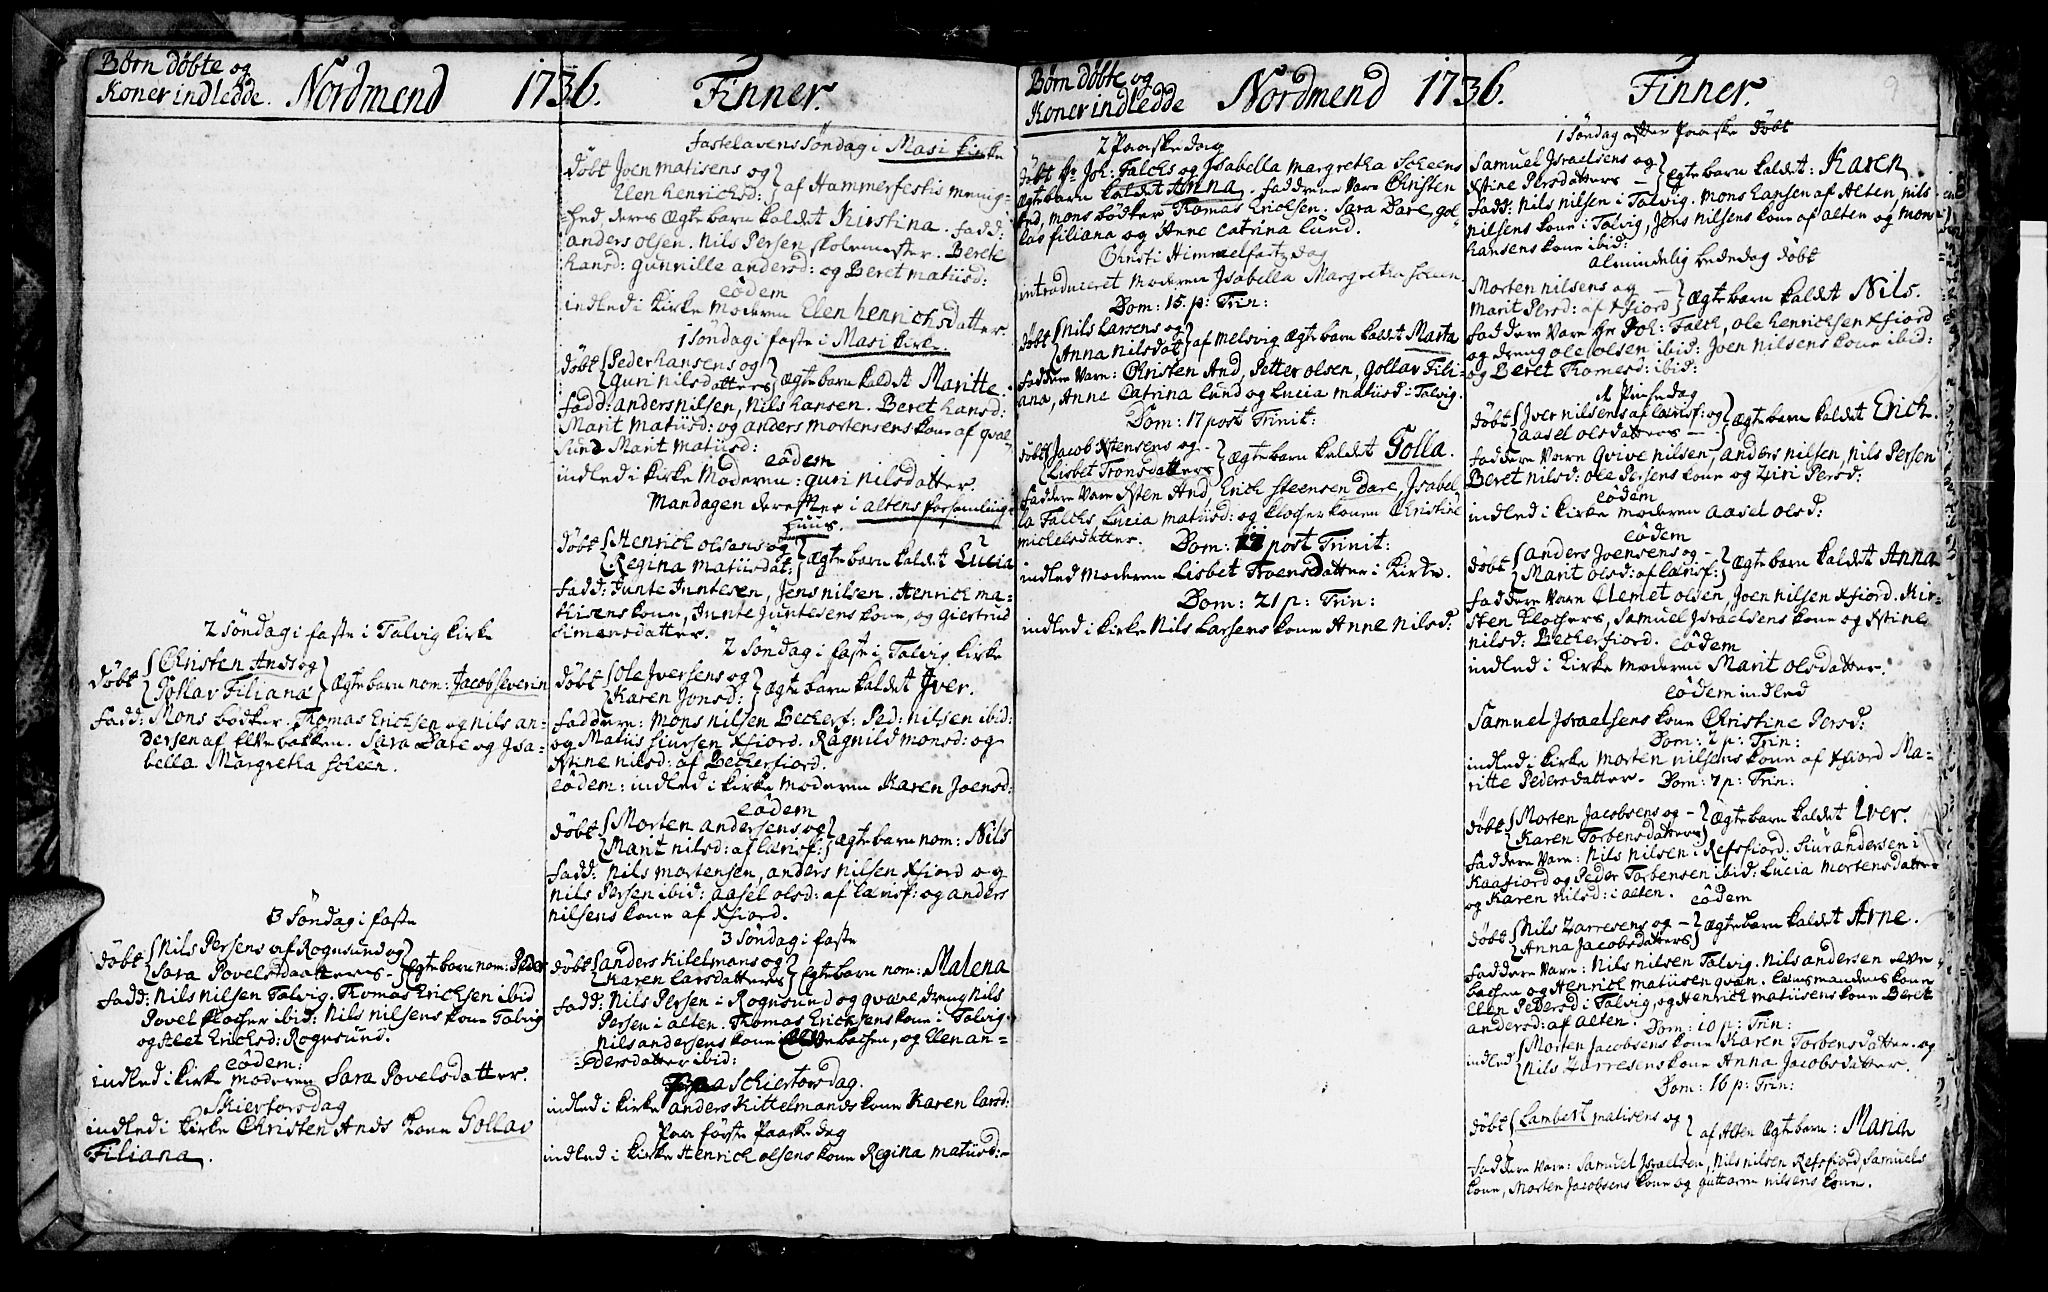 Børn døbte og
Koner indledde. Nordmend 1736. Finner.
2 Søndag i faste i Talvig kirke
døbt Christen Ands og
Gollav Filiana ægte barn nom: Jacob Severin
fadd: Mons bødker. Thomas Erichsen og Nils an-
dersen af Elvebakken. Sara Dare og Isa-
bella Margretha Scheen.
3 Søndag i faste
døbt Nils Persens af Rognsund og
Sara Povelsdaatters - Egte barn nom: Peder
fadd: Nils Nilsen Talvig. Thomas Erichsen ibid
Povel Klocher ibid: Nils Nilsens kone Talvig
og Alet Erichsd: Rognsund.
eôdem:
indled i kirke moderen Sara Povelsdatter.
Skiertorsdag
indled i kirke Christen Ands kone Gollav
Filiana.
fastelavens Søndag i Masi kirke
døbt Joen Matisens og
Elen Henrichsd: af Hammerfestis menig-
=hed deres ægte barn kaldet Kirstina. fadd:
anders olsen. Nils Persen skolemester. Berete
Hansd: Gunnille andersd: og Beret Matiisd:
eôdem
indled i kirke moderen Elen Henrichsdatter.
1 Søndag i faste i Masi kirke
døbt Peder Hansens og
Guri Nilsdatters ægte barn kaldet Maritte.
fadd: anders Nilsen, Nils Hansen. Beret Hansd:
Marit Matiisd: og anders Mortensens kone af qval-
sund Marit Matiisd:
eôdem
indled i kirke Moderen: Guri Nilsdatter.
Mandagen derefter i altens forsamlings
huus.
døbt Henrich olsens og
Regina Matiisdat: ægte barn kaldet Lucia
fadd: Junte Juntesen, Jens Nilsen. Henrich Ma-
tisens kone, Junte Juntesens kone og Giertrud
Simensdatter.
2 Søndag i faste i Talvig kirke
døbt Ole Jversens og
Karen Jonsd: ægte barn kaldet Jver.
faddere: Mons Nilsen Becherf: Ped: Nilsen ibid:
og Matiis Siursen Xfiord. Ragnild Monsd: og
Stine Nilsd: af Becherfiord:
eôdem: indled i kirke moderen Karen Joensd:
eôdem
døbt Morten andersens og
Marit Nilsd: af Lærisf: ægte barn nom: Nils
fadd: Nils Mortensen, anders Nilsen Xfiord og
Nils Persen ibid: aasel olsd: af Lærisf: og anders
Nilsens kone af Xfiord.
3 Søndag i faste
døbt anders Kitelmans og
Karen Larsdatters Egte barn nom: Malena
fadd: Nils Persen i Rognsund og qvæne dreng Nils
Persen i alten. Thomas Erichsens kone i Talvig.
Nils andersens kone Elvebachen, og Ellen an-
=dersdatter ibid:
paa Schiertorsdag.
indled i kirke anders Kittelmands kone Karen Larsd:
Paa første Paaske dag
indled i kirke Henrich olsens kone Regina Matiisd:
Børn døbte og
Koner indledde Nordmend 1736. Finner. 9
2 Paaske dag
døbt Hr Joh: Falchs og Isabella Margretha Scheens
ægte barn kaldet Anna. faddere vare Christen
And, Mons bødker Thomas Erichsen. Sara Dare, Gol-
lav filiana og Anne Catrina Lund.
Christi Himmelfartz dag
introduceret moderen Isabella Margretha Scheen
Dom: 15 p: Trin:
døbt Nils Larsens og
Anna Nilsdat af Melsvig ægte barn kaldt Marta
faddere vare: Christen And, Petter olsen, Gollav Fili-
ana, Anne Catrina Lund og Lucia Matiisd i Talvig.
Dom: 17 post Trinit:
døbt Jacob Xstensens og -
Lisbet Tronsdatters ægte barn kaldet Golla.
faddere vare Xsten And, Erich Steensen Dare, Isabel-
la Falchs, Lucia Matiisd: og klocher konen Christine
Michelsdatter.
Dom: 17 post Trinit:
indled moderen Lisbet Troensdatter i kirke.
Dom: 21 p: Trin:
indled i kirke Nils Larsens kone Anne Nilsd:
1 Søndag after Paaske døbt
Samuel Israelsens og
Xstine Persdatters - ægte barn kaldet: Karen
fadd: Nils Nilsen i Talvig. Mons Hansen af Alten, Nils
Nilsens kone i Talvig, Jens Nilsens kone af alten og Mons
Hansens kone ibid:
almindelig bededag døbt
Morten Nilsens og -
Marit Persd: af Xfiord ægte barn kaldet Nils.
faddere vare Hr Joh: Falch, ole Henrichsen Xfiord
og dreng ole olsen ibid: Joen Nilsens kone ibid:
og Beret Thomesd: ibid:
1 Pintsedag
døbt Jver Nilsens af Lærisf: og
aasel olsdatters - - ægte barn kaldet Erich.
faddere vare Qvive Nilsen, anders Nilsen, Nils Persen
Beret Nilsd: ole Persens kone og Ziri Persd:
eôdem
indled i kirke moderen aasel olsd:
eôdem
døbt anders Joensens og -
Marit olsd: af Lærisf: ægte barn kaldet Anna
faddere vare Clemet olsen, Joen Nilsen Xfiord. Kir-
sten Klochers, Samuel Israelsens kone og Xstine
Nilsd: Becherfiord.
eôdem
indled i kirke moderen Marit olsdatter.
eôdem indled
Samuel Israelsens kone Christine Persd:
Dom: 2 p: Trin:
indled i kirke Morten Nilsens kone af Xfiord Ma-
ritte Pedersdatter - Dom: 7 p: Trin:
døbt Morten Jacobsens og -
Karen Torbensdatters ægte barn kaldet Iver.
faddere vare: Nils Nilsen i Refsfiord. Siur andersen i
Kaafiord og Peder Torbensen ibid: Lucia Mortensdatter
og Karen Nilsd: i alten.
eôdem
døbt Nils Zarresens og -
Anna Jacobsdatters ægte barn kaldet Arne.
faddere vare: Nils Nilsen Talvig. Nils andersen elve
bachen og Henrich Matiisen qvæn. Lensmandens kone
Elen Pedersd i Talvig, og Henrich Matiisens kone Beret
andersd: af alten.
Dom: 10 p: Trin:
indled Morten Jacobsens kone Karen Torbensdatter og
Nils Zarresens kone Anna Jacobsdatter.
Dom: 16 p: Trin:
døbt Lambert Matisens og
af Alten ægte barn: Maria
faddere vare: Samuel Israelsen, Nils Nilsen Refsfiord, Samuels
kone, Morten Jacobsens kone og Guttorm Nilsens kone.